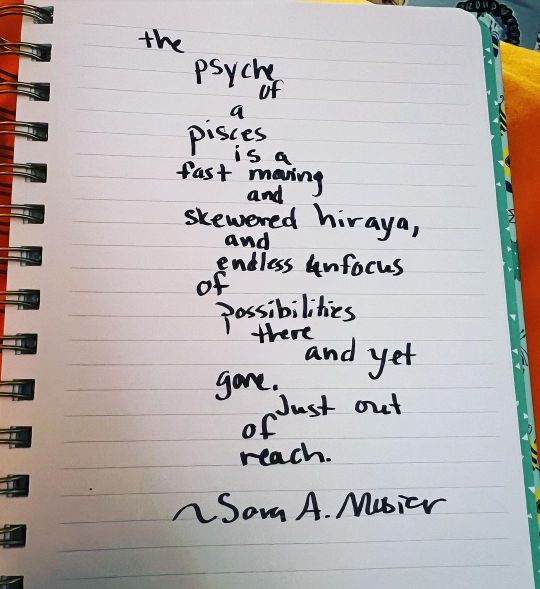 the
psyche
of
a
pisces
is a
fast moving
and
skewered hiraya,
and
endless unfocus
of
possibilities
there
and yet
gone.
Just out
of
reach.
~Sara A.